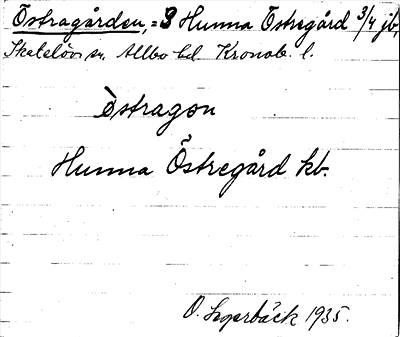 Östragården, = 3 Hunna Östregård 3/4 jb,
Skatelöv sn. Allbo hd. Kronob. l.
östragon
Hunna Östregård kb.
O. Segerbäck 1935.